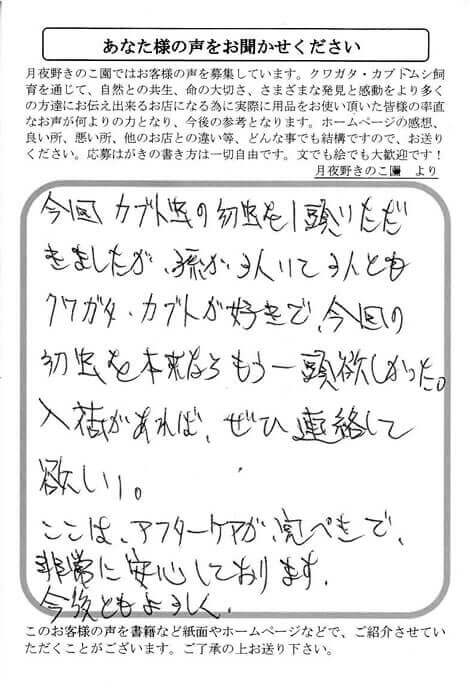 あなた様の声をお聞かせください
月夜野きのこ園ではお客様の声を募集しています。クワガタ・カブトムシ飼
育を通じて、自然との共生、命の大切さ、さまざまな発見と感動をより多く
の方達にお伝え出来るお店になる為に実際に用品をお使い頂いた皆様の率直
なお声が何よりの力となり、今後の参考となります。ホームページの感想、
良い所、悪い所、他のお店との違い等、どんな事でも結構ですので、お送り
ください。応募はがきの書き方は一切自由です。文でも絵でも大歓迎です！
月夜野きのこ園　より
今回カブト虫の幼虫を1頭いただ
きましたが、孫が3人いて3人とも
クワガタ・カブトが好きで、今回の
幼虫を本来ならもう一頭欲しかった。
入荷があれば、ぜひ連絡して
欲しい。
ここは、アフターケアが、完ぺきで、
非常に安心しております。
今後ともよろしく.
このお客様の声を書籍など紙面やホームページなどで、ご紹介させてい
ただくことがございます。ご了承の上お送り下さい。